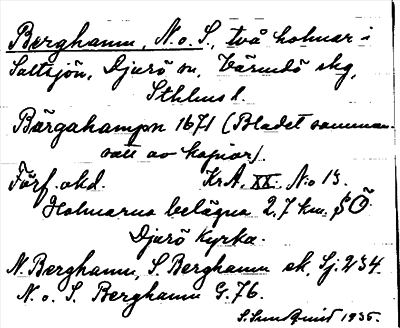 Berghamn, N. o. S., två holmar i
Saltsjön, Djurö sn, Värmdö skg,
Sthlms l.
Bärgahampn 1671 (Bladet samman-
satt av kopior).
Förf. okd. KrA, XX: No 13.
Holmarna belägna 2,7 km SÖ
Djurö Kyrka.
N. Berghamn, S. Berghamn ek. Sj. 234.
N. o. S. Berghamn G. 76.
1935.